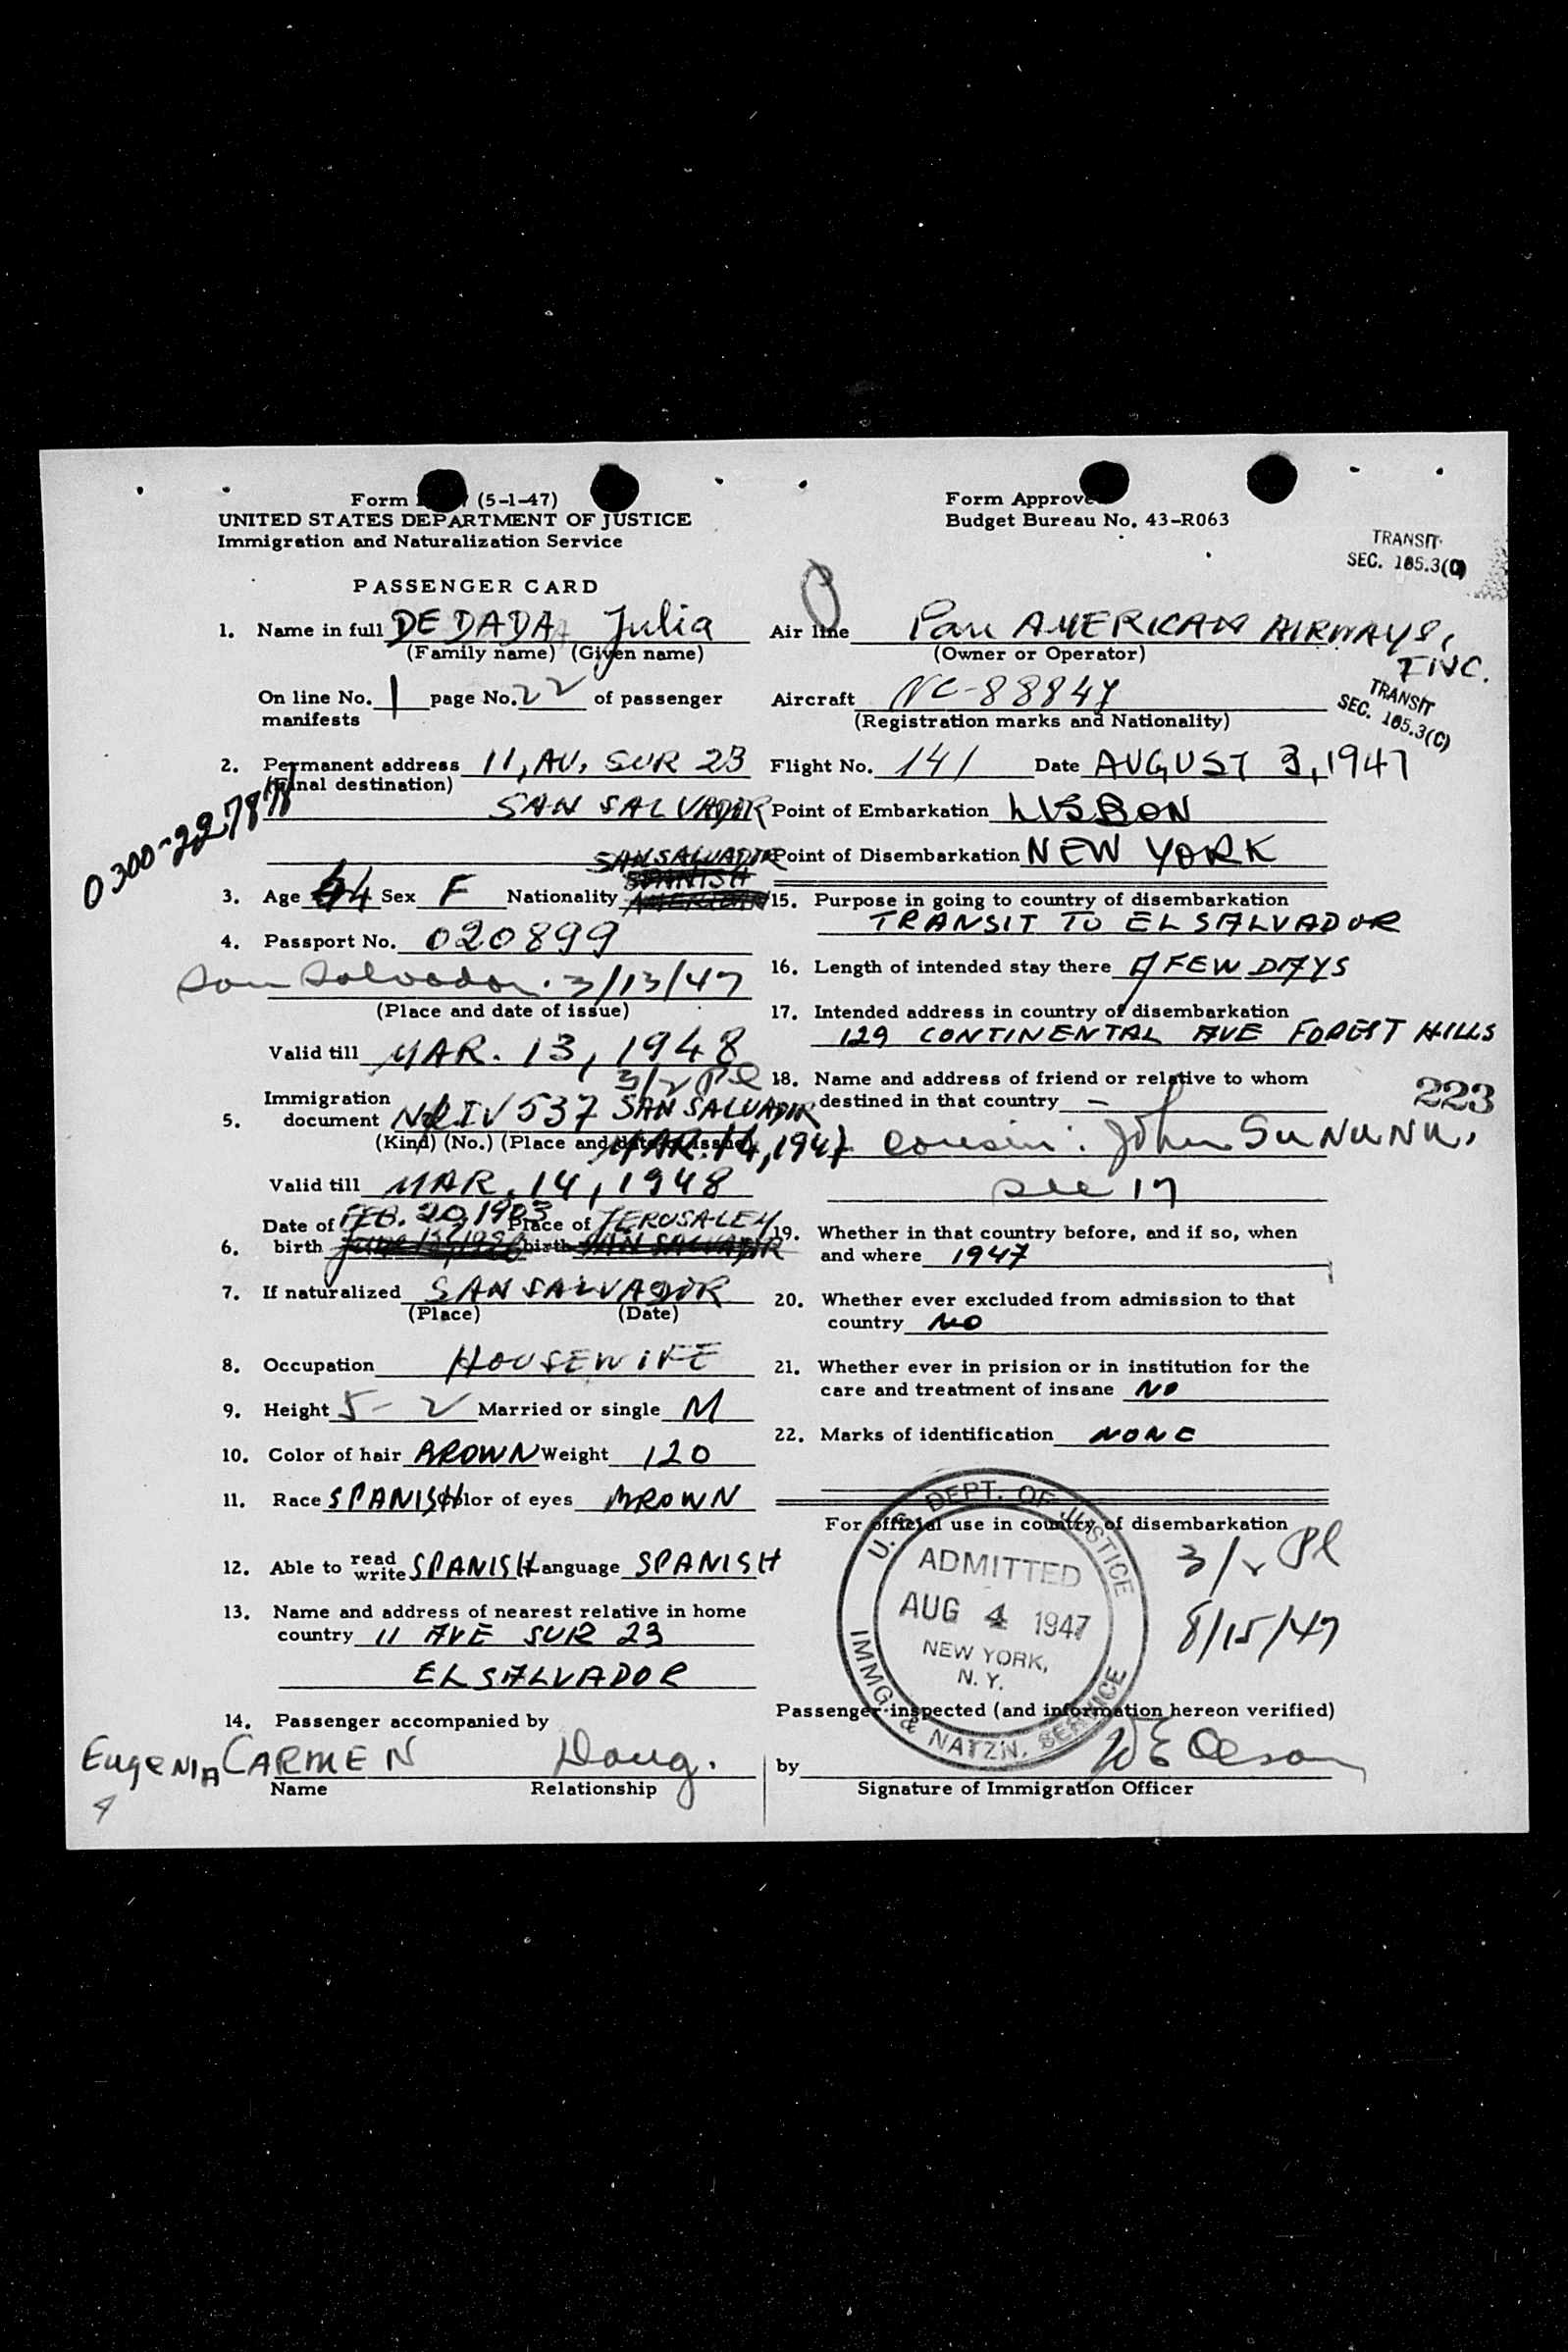 Form (5-1-47)
UNITED STATES DEPARTMENT OF JUSTICE
Immigration and Naturalization Service
PASSENGER CARD
1. Name in full DE DADA Julia
(Family name) (Given name)
On line No. 1 page No. 22 of passenger
manifests
2. Permanent address 11, AV, SUR 23
(Final destination)
SAN SALVADOR
0300-22787
SAN SALVADOR
SPANISH
3. Age 44 Sex F Nationality AMERICAN
4. Passport No. 020899
San Salvador. 3/13/47
(Place and date of issue)
Valid till MAR. 13, 1948
3/2 Pl
Immigration
5. document IV 537 SAN SALVADOR
(Kind) (No.) (Place and date of issue)
MAR. 14, 1947
Valid till MAR. 14, 1948
FEB. 20, 1903 JERUSALEM
Date of Place of
6. birth June birth SAN SALVADOR
7. If naturalized SAN SALVADOR
(Place) (Date)
8. Occupation HOUSEWIFE
9. Height 5-2 Married or single M
10. Color of hair BROWN Weight 120
11. Race SPANISH Color of eyes BROWN
12. Able to read write SPANISH Language SPANISH
13. Name and address of nearest relative in home
country 11 AVE SUR 23
EL SALVADOR
14. Passenger accompanied by
EugeNIA CARMEN Daug.
Name Relationship
4
Form Approved
Budget Bureau No. 43-R063
TRANSIT
SEC. 105.3(C)
Air line Pan AMERICAN AIRWAYS,
INC.
(Owner or Operator)
TRANSIT
SEC. 105.3(C)
Aircraft NC-88847
(Registration marks and Nationality)
Flight No. 141 Date AUGUST 3, 1947
Point of Embarkation LISBON
Point of Disembarkation NEW YORK
15. Purpose in going to country of disembarkation
TRANSIT TO EL SALVADOR
16. Length of intended stay there A FEW DAYS
17. Intended address in country of disembarkation
129 CONTINENTAL AVE FOREST HILLS
18. Name and address of friend or relative to whom
destined in that country -
223
cousin: John SuNuNu.
see 17
19. Whether in that country before, and if so, when
and where 1947
20. Whether ever excluded from admission to that
country NO
21. Whether ever in prision or in institution for the
care and treatment of insane NO
22. Marks of identification NONE
For official use in country of disembarkation
U.S. DEPT. OF JUSTICE
ADMITTED
AUG 4 1947
NEW YORK,
N. Y.
IMMG. & NATZ'N. SERVICE
3/2 Pl
8/15/47
Passenger inspected (and information hereon verified)
by W E Olson
Signature of Immigration Officer